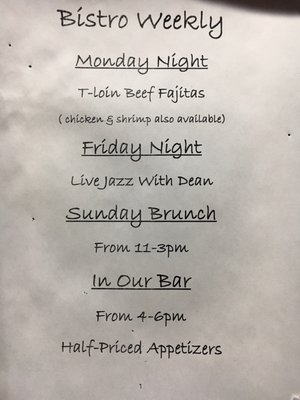 Bistro Weekly
Monday Night
T-loin Beef Fajitas
( chicken & shrimp also available)
Friday Night
Live Jazz With Dean
Sunday Brunch
From 11-3pm
In Our Bar
From 4-6pm
Half-Priced Appetizers
1